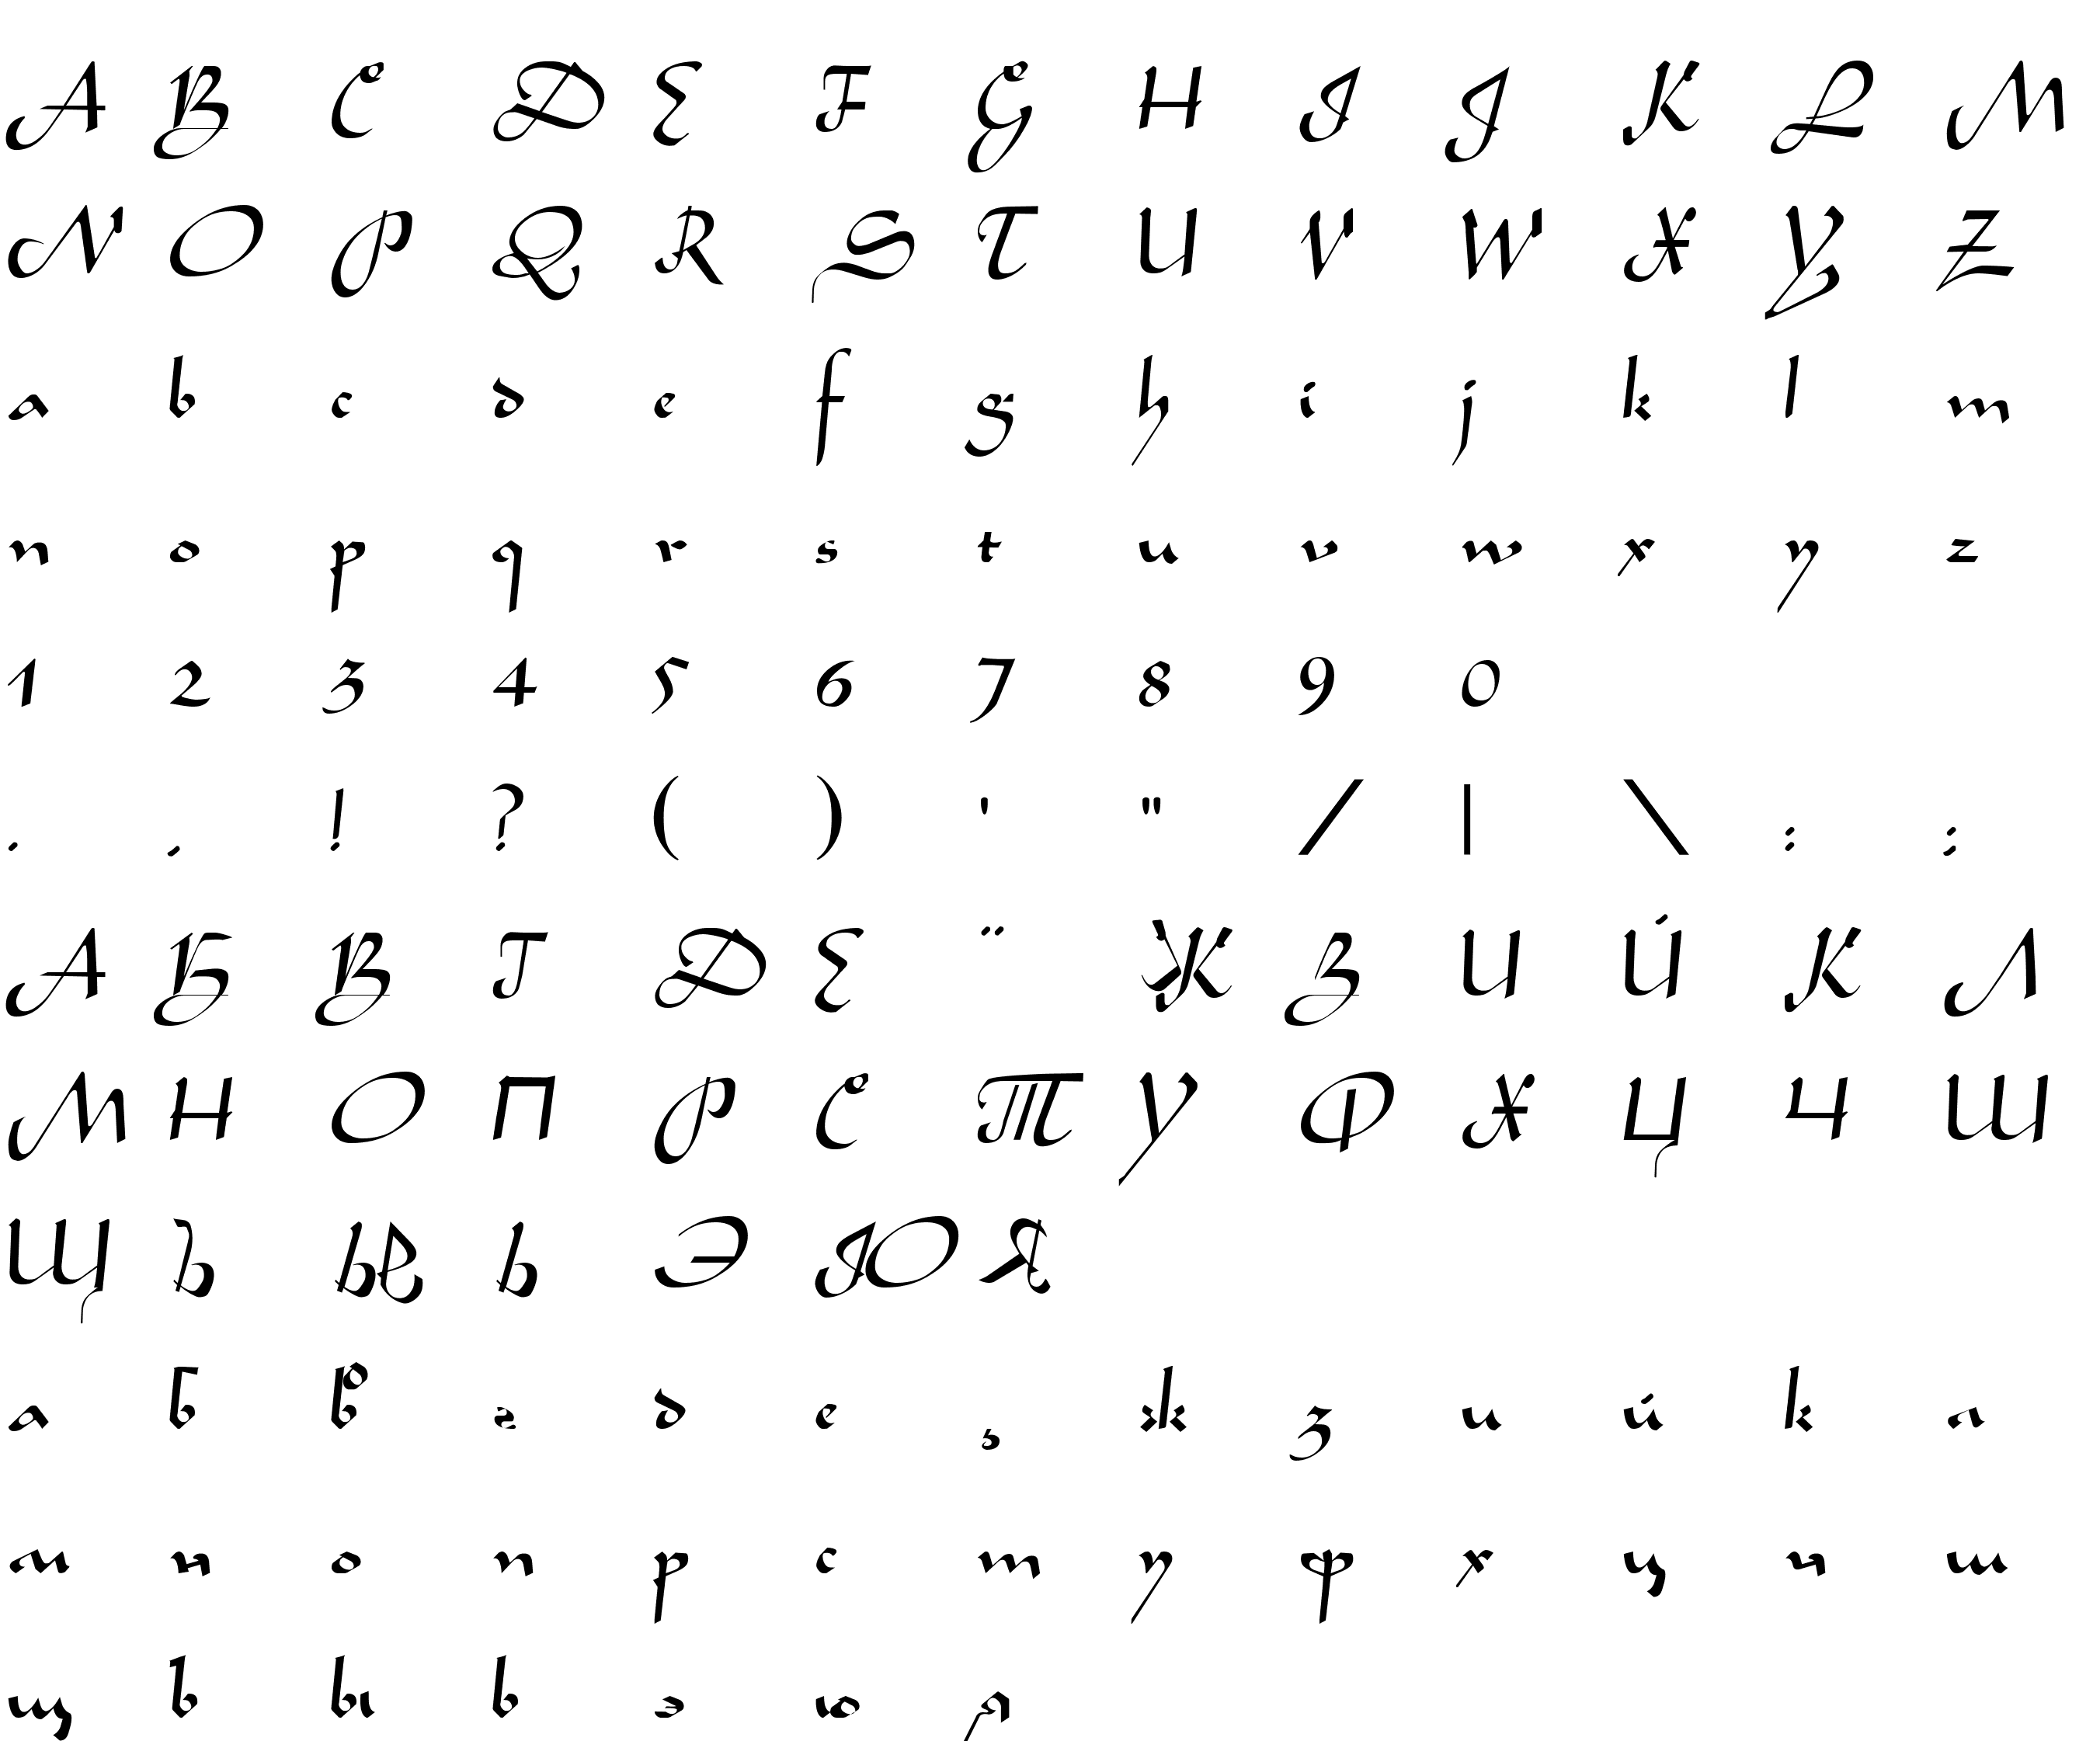 A B C D E F G H I J K L M
N O P Q R S T U V W X Y Z
a b c d e f g h i j k l m
n o p q r s t u v w x y z
1 2 3 4 5 6 7 8 9 0
. , ! ? ( ) ' " / | \ : ;
А Б В Г Д Е ¨ Ж З И Й К Л
М Н О П Р С Т У Ф Х Ц Ч Ш
Щ Ъ Ы Ь Э Ю Я
а б в г д е ¸ ж з и й к л
м н о п р с т у ф х ц ч ш
щ ъ ы ь э ю я